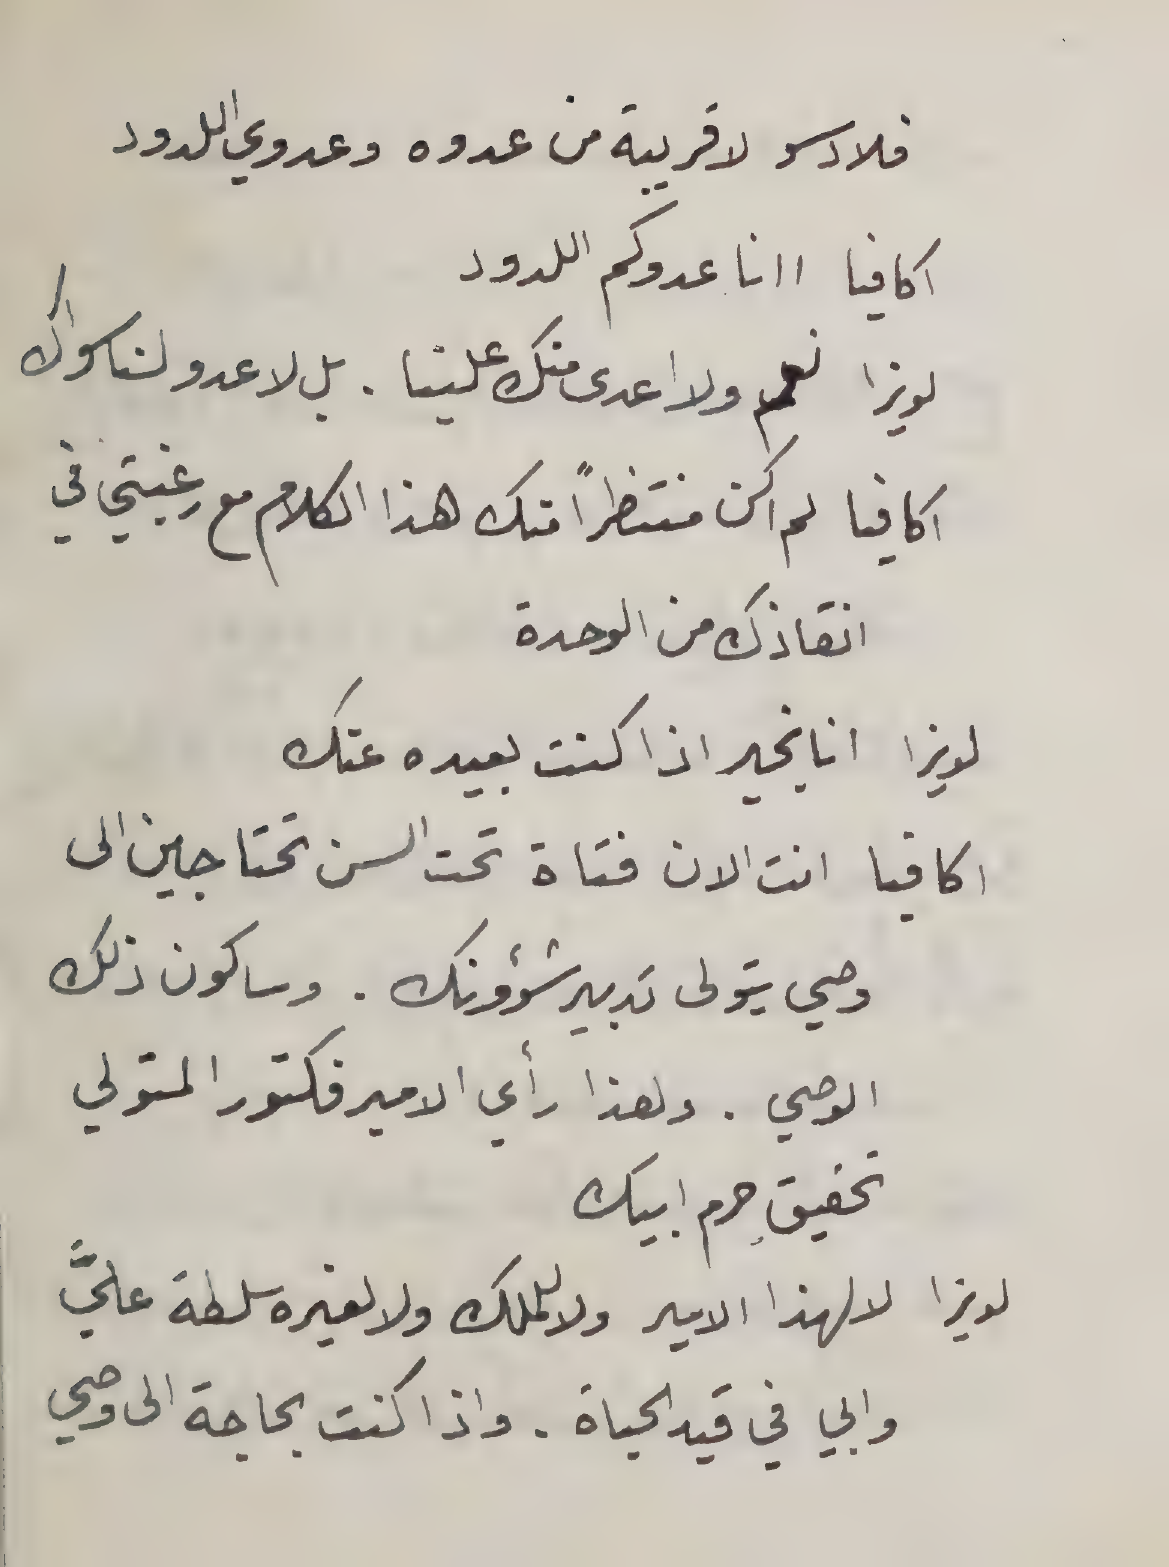 فلادسو لا قريبة من عدوه وعدوي اللدود
اكافيا اانا عدوكم اللدود
لويزا نعم ولا اعدى منك علينا . بل لا عدو لنا سواك
اكافيا لم اكن منتظراً منك هذا الكلام مع رغبتي في
انقاذك من الوحدة
لويزا انا بخير اذا كنت بعيده عنك
اكافيا انت الان فتاة تحت السن تحتاجين الى
وصي يتولى تدبير شؤونك . وساكون ذلك
الوصي . ولهذا رأي الامير فكتور المتولي
تحقيق جرم ابيك
لويزا لا لهذا الامير ولا للملك ولا لغيره سلطة عليَّ
وابي في قيد الحياة . واذا كنت بحاجة الى وصي